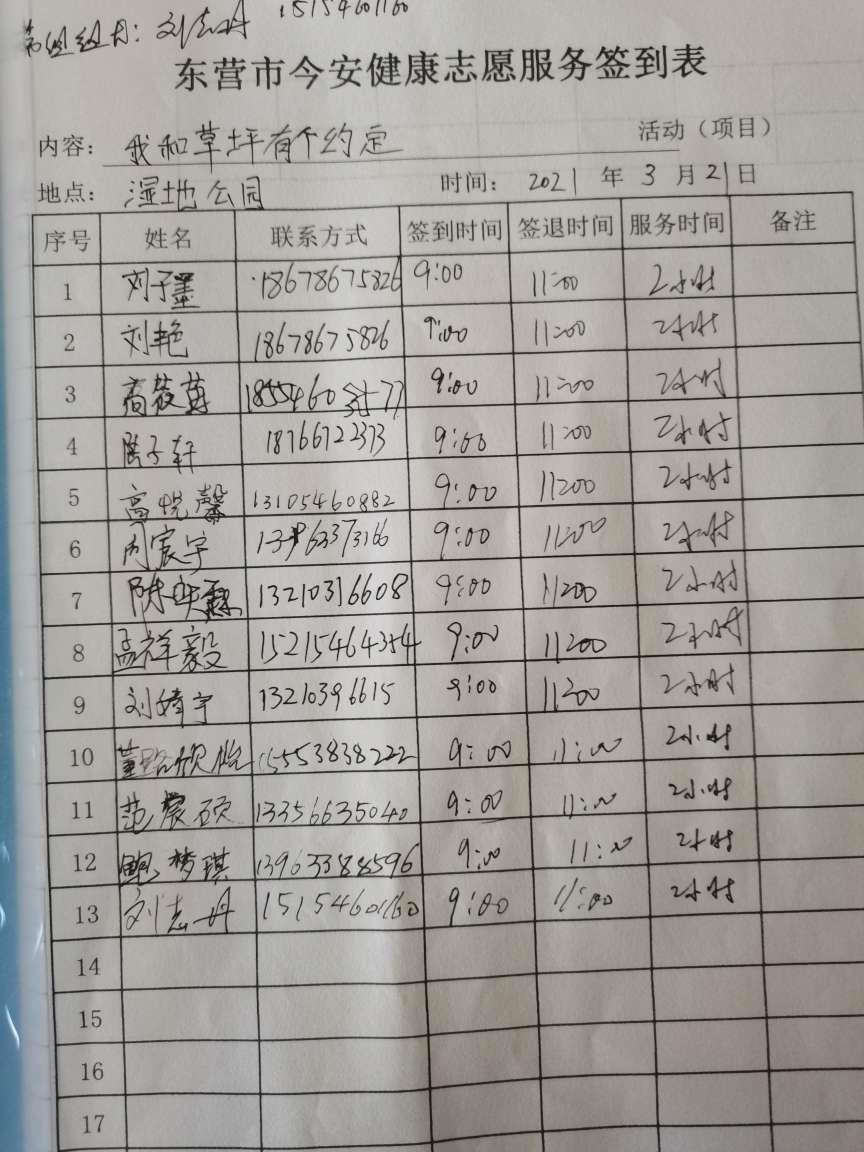 组组长：刘志丹 15154601160
东营市今安健康志愿服务签到表
内容：我和草坪有个约定 活动（项目）
地点：湿地公园 时间：2021年3月21日
序号 姓名 联系方式 签到时间 签退时间 服务时间 备注
1 刘子墨 18678675826 9:00 11:00 2小时
2 刘艳 18678675826 9:00 11:00 2小时
3 高筱 9:00 11:00 2小时
4 陈子轩 18766722373 9:00 11:00 2小时
5 高悦馨 13105460882 9:00 11:00 2小时
6 周宸宇 9:00 11:00 2小时
7 陈 13210316608 9:00 11:00 2小时
8 孟祥毅 15215464354 9:00 11:00 2小时
9 刘婧宇 13210396615 9:00 11:00 2小时
10 董路欣怡 15553838222 9:00 11:00 2小时
11 范宸硕 13356635040 9:00 11:00 2小时
12 鲍梦琪 13963388596 9:00 11:00 2小时
13 刘志丹 15154601160 9:00 11:00 2小时
14
15
16
17